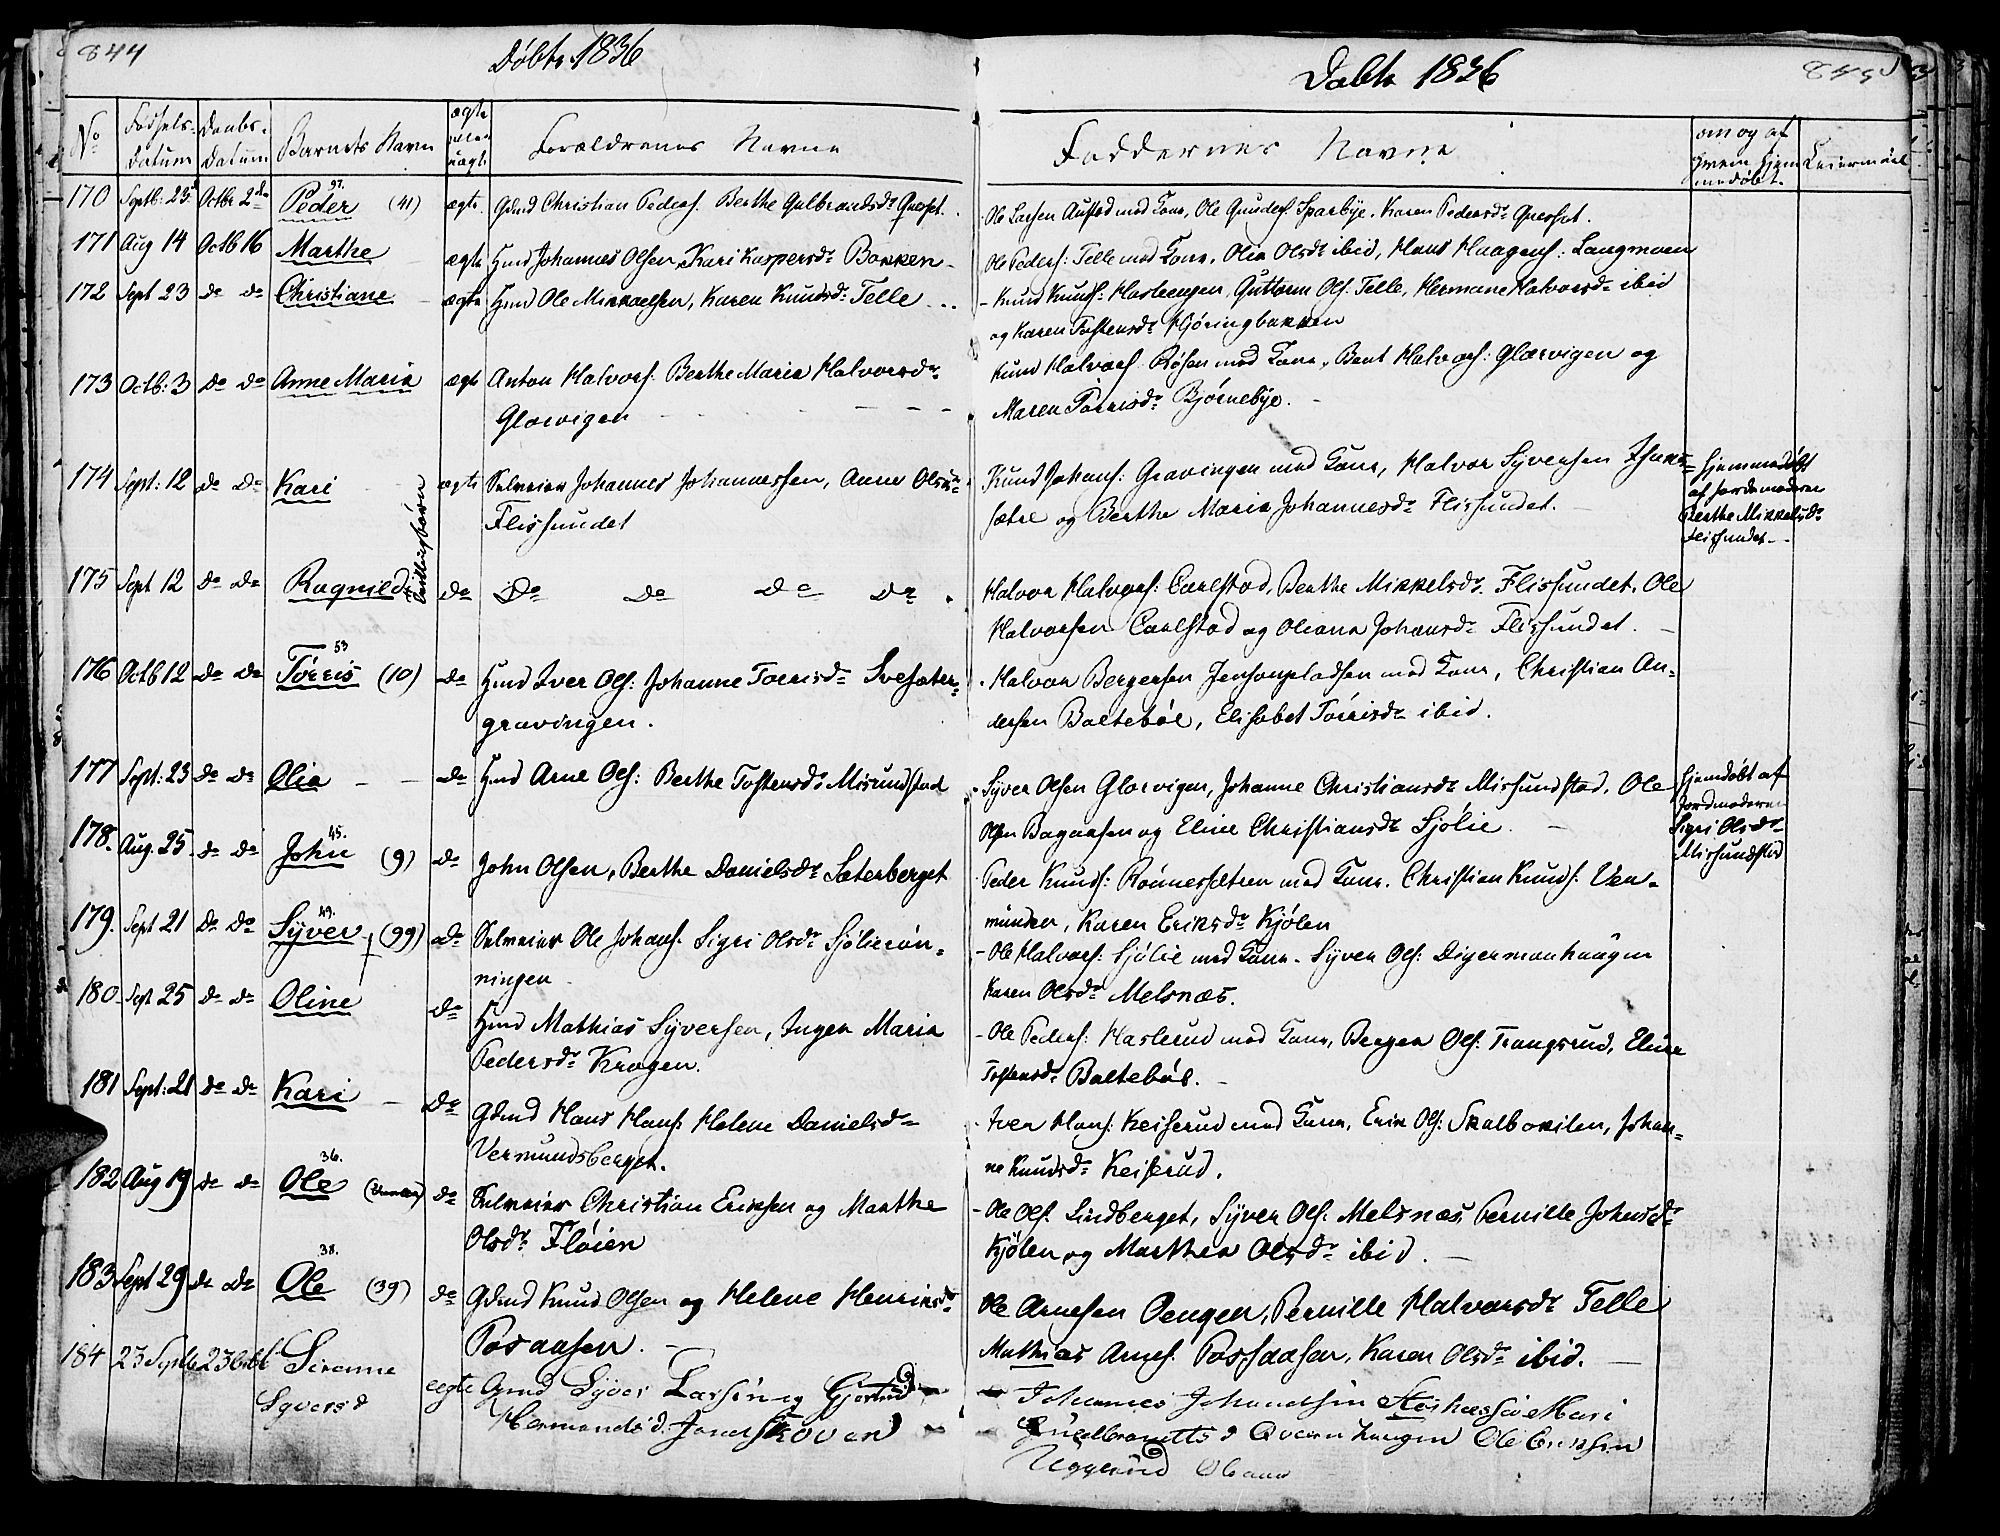 844
Døbte 1836
No
Fødsels-
datum
Daabs-
Datum
Barnets Navn
ægte
eller
uægte
Forældrenes Navne
170 Septb: 23 Octbr 2de Peder 97. (41) ægte Gdmd Christian Peders. Berthe Gulbrandsdr Qverset.
171 Aug 14 Octb 16 Marthe ægte Hmd Johannes Olsen, Kari Kaspersdr Bakken
172 Sept 23 do do Christiane ægte Hmd Ole Mikkaelsen, Karen Knudsdr Telle
173 Octb: 3 do do Anne Maria ægte Anton Halvors. Berthe Maria Halvorsdr
Glorvigen
174 Sept: 12 do do Kari ægte Selveier Johannes Johannessen, Anne Olsdr
Flissundet
Tvillingbørn
175 Sept 12 do do Ragnild do Do do do do
176 Octb 12 do do Tørris 53 (10) do Hmd Iver Ols: Johanne Torrisdr Svesæter-
gravingen.
177 Sept: 23 do do Olia do Hmd Arne Ols: Berthe Tostensdr Misundstad
178. Aug. 25 do do John 45. (9) do John Olsen, Berthe Danielsdr Sæterberget
179. Sept 21 do do Syver 49. (99) do Selveier Ole Johans. Sigri Olsdr Sjølierøn-
ningen
180 Sept 25 do do Oline do Hmd Mathias Syversen, Inger Maria
Pedersdr Kragen.
181 Sept: 21 do do Kari do Gdmd Hans Hans. Helene Danielsdr
Vermundsberget.
182 Aug 19 do do Ole 36. do Selveier Christian Eriksen og Marthe
Olsdr Fløien
183 Sept 29 do do Ole 38. (39) do Gdmd Knud Olsen og Helene Henriksdr
Posaasen.
184 23 Septb 23 Octbr Sirenne
Syversd ægte Gmd Syver Larsen og Gjertrud
Hermandsd. Jonsskoven
Døbte 1836
845
Faddernes Navne
om og af
hvem hjem
medøbt.
Leiermaal
Ole Larsen Austad med Kone, Ole Gunders. Sparbye, Karen Pedersdr Qverset.
Ole Peders: Telle med Kone, Olia Olsdr ibid, Hans Haagens: Langmoen
Knud Knuds: Haslengen, Guttorm Ols. Telle, Hermane Halvorsdr ibid
og Karen Tostensdr Hjøringbakken
Knud Halvors. Røsen med Kone, Bent Halvors: Glorvigen og
Maren Torrisdr Bjørnebye.
Knud Johans: Gravingen med Kone, Halvor Syversen
sætre og Berthe Maria Johannesdr Flissundet.
Hjemmedøbt
af Jordemoderen
Berthe Mikkelsdr
Flissundet
Halvor Halvors: Carlstad, Berthe Mikkelsdr. Flissundet, Ole
Halvorsen Carlstad og Oliana Johansdr Flissundet.
Halvor Bergersen Jensenpladsen med Kone, Christian An-
dersen Baltebøl, Elisabet Torrisdr ibid.
Syver Olsen Glorvigen, Johanne Christiansdr Missundstad, Ole
Olsen Bagaasen og Eline Christiansdr Sjølie.
Hjemdøbt af
Jordmoderen
Sigri Olsdr
Missundstad
Peder Knuds: Rønnessætren med Kone. Christian Knuds. Ver-
munden, Karen Eriksdr Kjølen
Ole Halvors: Sjølie med Kone. Syver Ols: Digermanhaugen
Karen Olsdr Melsnæs.
Ole Peders: Haslerud med Kone, Berger Ols. Trangsrud, Eline
Tostensdr Baltebøl.
Iver Hans: Keiserud med Kone, Erik Ols: Skalbokilen, Johan-
ne Knudsdr Keiserud.
Ole Ols. Lindberget, Syver Ols. Melsnæs, Pernille Johnsdr
Kjølen og Marthea Olsdr ibid.
Ole Arnesen Oengen, Pernille Halvorsdr Telle
Mathias Arnes. Possaasen, Karen Olsdr ibid.
Johannes Johandsen Mari
Guldbrandtsd Qværnhaugen Ole Erichsen
Uggerud